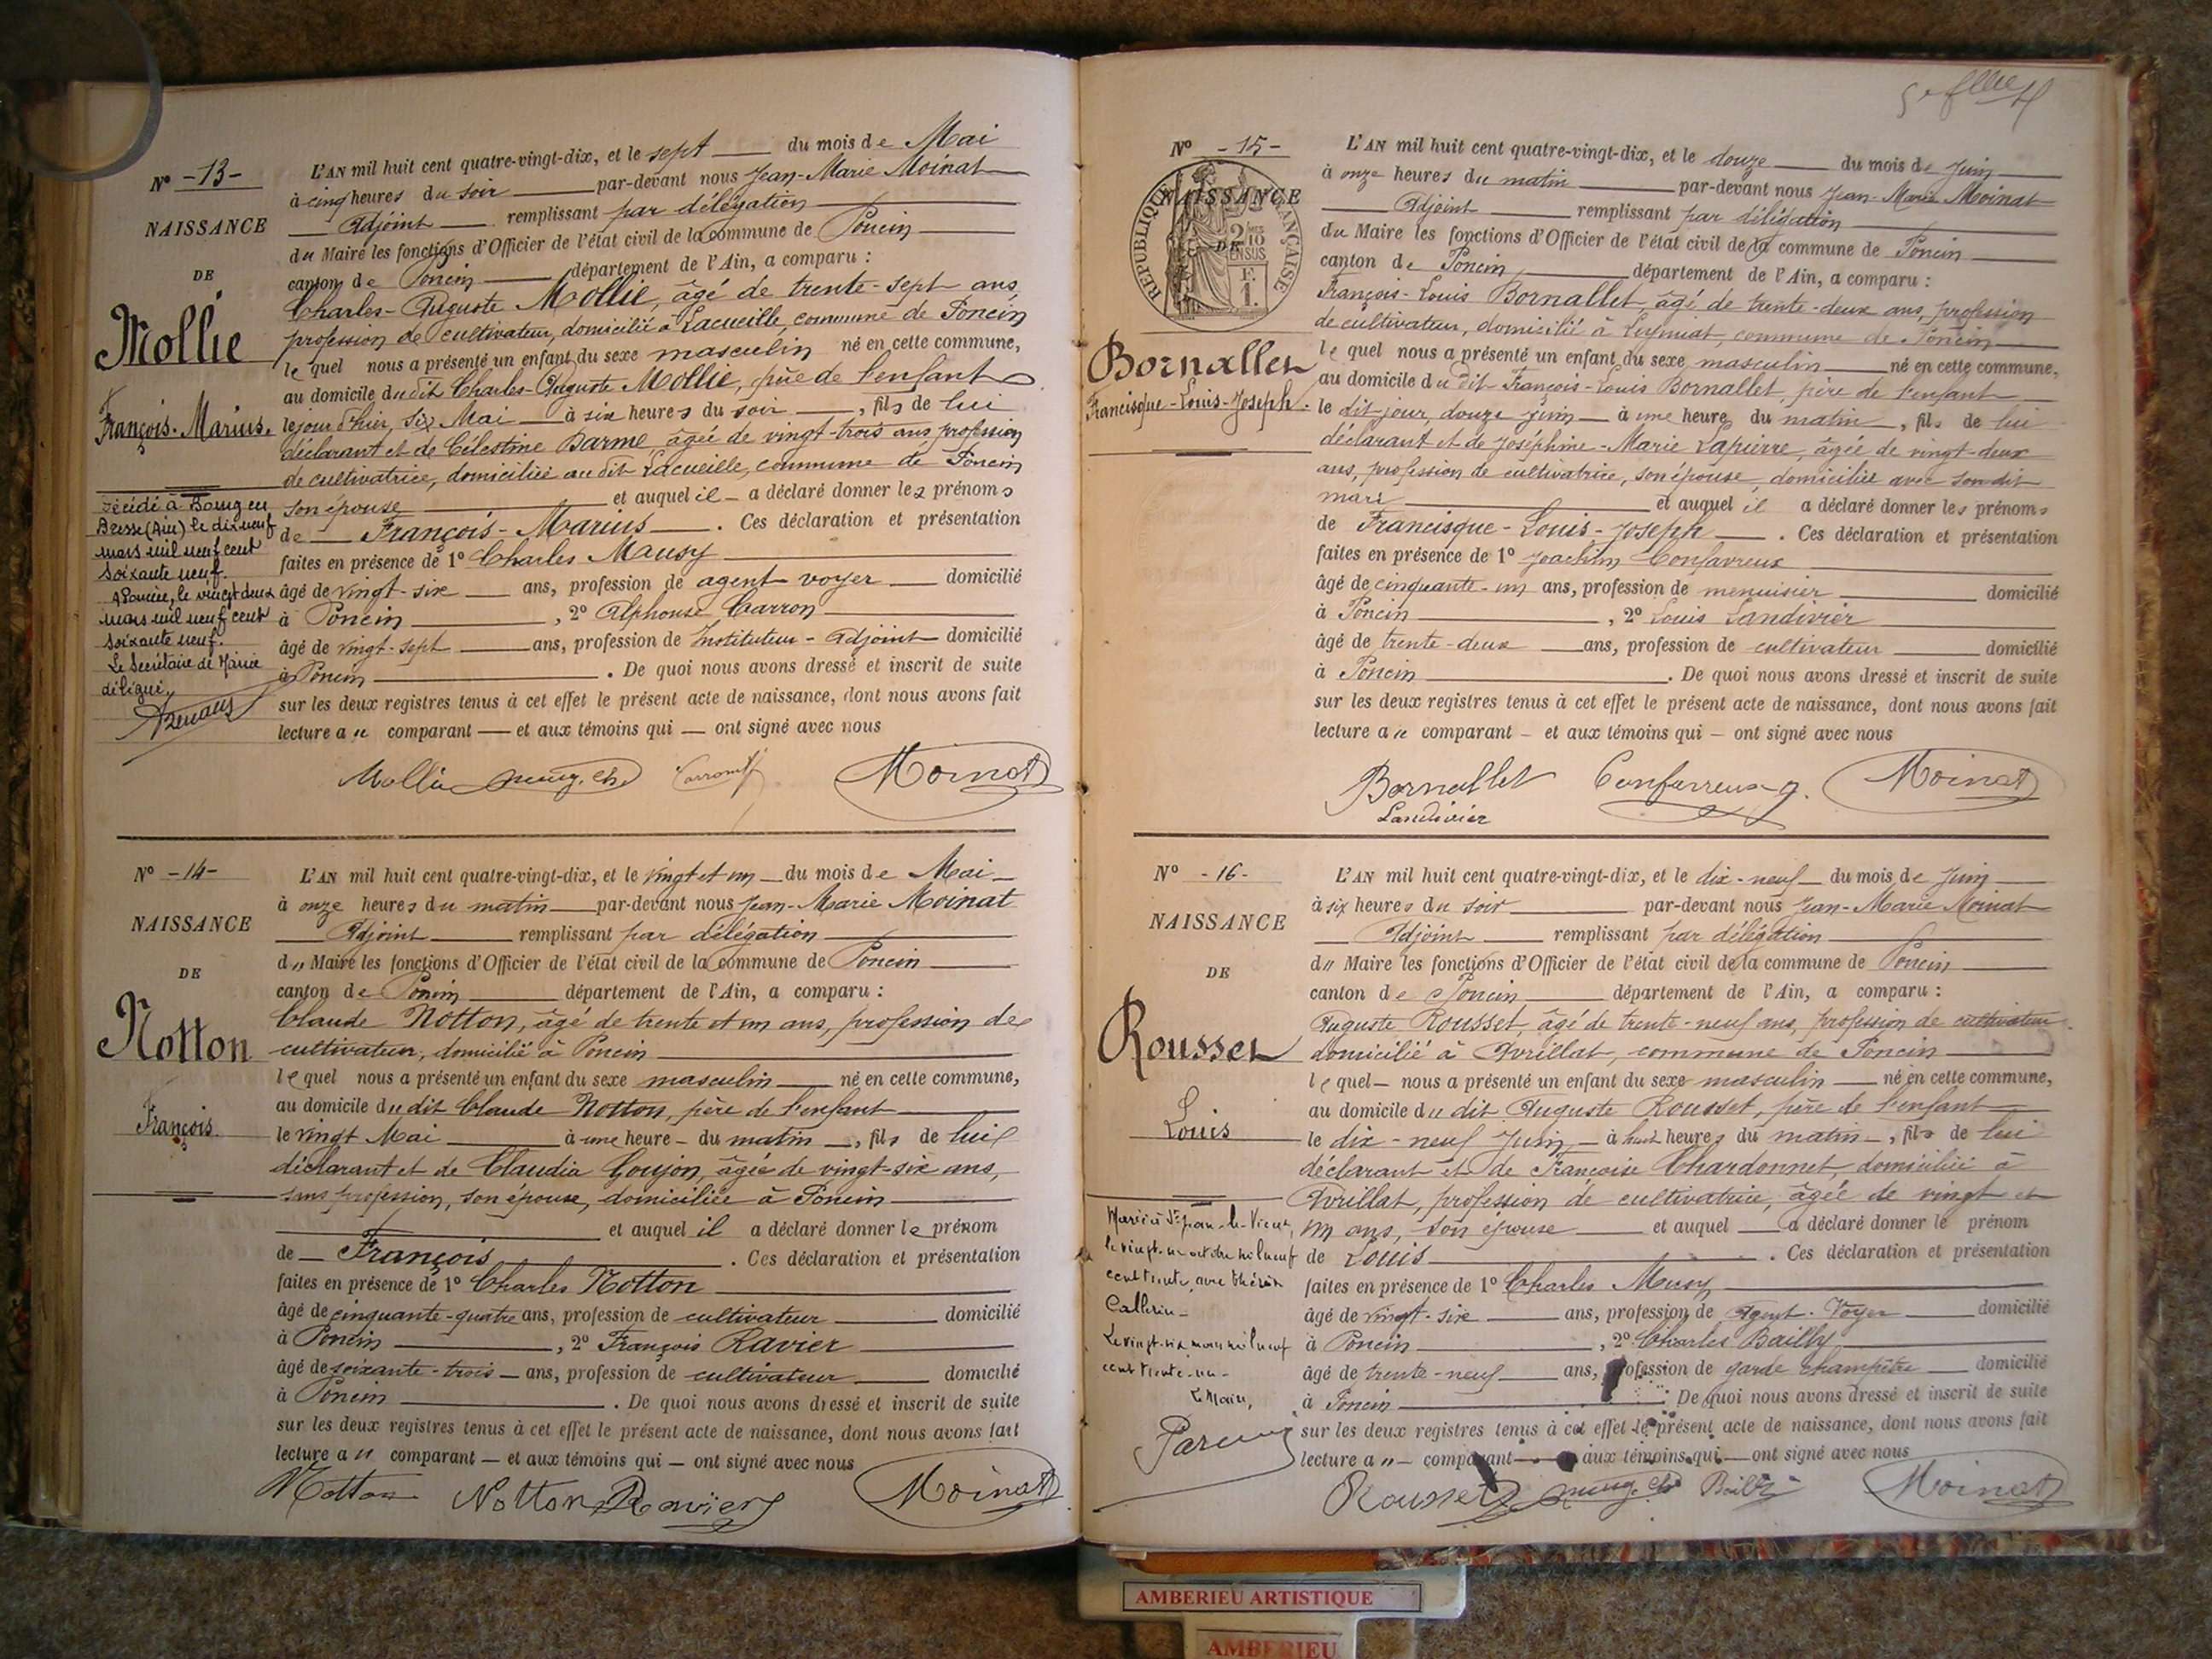 Nº -13-
NAISSANCE
DE
Mollie
François-Marius.
décédé à Bourg en
Bresse (Ain) le dix neuf
mars mil neuf cent
soixante neuf.
A Poncin, le vingt deux
mars mil neuf cent
soixante neuf.
Le Secrétaire de Mairie
délégué,
L'AN mil huit cent quatre-vingt-dix, et le sept du mois de Mai
à cinq heures du soir par-devant nous Jean-Marie Moinat
Adjoint remplissant par délégation
du Maire les fonctions d'Officier de l'état civil de la commune de Poncin
canton de Poncin département de l'Ain, a comparu :
Charles-Auguste Mollie, âgé de trente-sept ans,
profession de cultivateur, domicilié à Lacueille, commune de Poncin
lequel nous a présenté un enfant du sexe masculin né en cette commune,
au domicile du dit Charles-Auguste Mollie, père de l'enfant
le jour d'hier, six Mai à six heures du soir, fils de lui
déclarant et de Célestine Darme, âgée de vingt-trois ans, profession
de cultivatrice, domiciliée au dit Lacueille, commune de Poncin
son épouse et auquel il a déclaré donner les prénoms
de François-Marius. Ces déclaration et présentation
faites en présence de 1º Charles Mausy
âgé de vingt-six ans, profession de agent voyer domicilié
à Poncin, 2º Alphonse Carron
âgé de vingt-sept ans, profession de Instituteur-Adjoint domicilié
à Poncin. De quoi nous avons dressé et inscrit de suite
sur les deux registres tenus à cet effet le présent acte de naissance, dont nous avons fait
lecture au comparant et aux témoins qui ont signé avec nous
Mollie Carron Moinat
Nº -14-
NAISSANCE
DE
Notton
François.
L'AN mil huit cent quatre-vingt-dix, et le vingt et un du mois de Mai
à onze heures du matin par-devant nous Jean-Marie Moinat
Adjoint remplissant par délégation
du Maire les fonctions d'Officier de l'état civil de la commune de Poncin
canton de Poncin département de l'Ain, a comparu :
Claude Notton, âgé de trente et un ans, profession de
cultivateur, domicilié à Poncin
lequel nous a présenté un enfant du sexe masculin né en cette commune,
au domicile du dit Claude Notton, père de l'enfant
le vingt Mai à une heure du matin, fils de lui
déclarant et de Claudia Goujon, âgée de vingt-six ans,
sans profession, son épouse, domiciliée à Poncin
et auquel il a déclaré donner le prénom
de François. Ces déclaration et présentation
faites en présence de 1º Charles Notton
âgé de cinquante-quatre ans, profession de cultivateur domicilié
à Poncin, 2º François Ravier
âgé de soixante-trois ans, profession de cultivateur domicilié
à Poncin. De quoi nous avons dressé et inscrit de suite
sur les deux registres tenus à cet effet le présent acte de naissance, dont nous avons fait
lecture au comparant et aux témoins qui ont signé avec nous
Notton Notton Ravier Moinat
Nº -15-
NAISSANCE
DE
RÉPUBLIQUE FRANÇAISE
Bornallet
Francisque-Louis-Joseph.
L'AN mil huit cent quatre-vingt-dix, et le douze du mois de Juin
à onze heures du matin par-devant nous Jean-Marie Moinat
Adjoint remplissant par délégation
du Maire les fonctions d'Officier de l'état civil de la commune de Poncin
canton de Poncin département de l'Ain, a comparu :
François-Louis Bornallet âgé de trente-deux ans, profession
de cultivateur, domicilié à Leymiat, commune de Poncin
lequel nous a présenté un enfant du sexe masculin né en cette commune,
au domicile du dit François-Louis Bornallet, père de l'enfant
le dit jour, douze Juin à une heure du matin, fils de lui
déclarant et de Joséphine-Marie Lapierre, âgée de vingt-deux
ans, profession de cultivatrice, son épouse, domiciliée avec son dit
mari et auquel il a déclaré donner les prénoms
de Francisque-Louis-Joseph. Ces déclaration et présentation
faites en présence de 1º Joachim Confavreux
âgé de cinquante-un ans, profession de menuisier domicilié
à Poncin, 2º Louis Landivier
âgé de trente-deux ans, profession de cultivateur domicilié
à Poncin. De quoi nous avons dressé et inscrit de suite
sur les deux registres tenus à cet effet le présent acte de naissance, dont nous avons fait
lecture au comparant et aux témoins qui ont signé avec nous
Bornallet Confavreux J. Moinat
Landivier
Nº -16-
NAISSANCE
DE
Rousset
Louis
Marié à St Jean-le-Vieux,
le vingt-un octobre mil neuf
cent trente, avec Thérèse
Callerin
Le vingt-six mars mil neuf
cent trente-un-
Le Maire,
L'AN mil huit cent quatre-vingt-dix, et le dix-neuf du mois de Juin
à six heures du soir par-devant nous Jean-Marie Moinat
Adjoint remplissant par délégation
du Maire les fonctions d'Officier de l'état civil de la commune de Poncin
canton de Poncin département de l'Ain, a comparu :
Auguste Rousset, âgé de trente-neuf ans, profession de cultivateur
domicilié à Avrillat, commune de Poncin
lequel nous a présenté un enfant du sexe masculin né en cette commune,
au domicile du dit Auguste Rousset, père de l'enfant
le dix-neuf Juin à huit heures du matin, fils de lui
déclarant et de Françoise Chardonnet, domiciliée à
Avrillat, profession de cultivatrice, âgée de vingt et
un ans, son épouse et auquel a déclaré donner le prénom
de Louis. Ces déclaration et présentation
faites en présence de 1º Charles Musy
âgé de vingt-six ans, profession de Agent-Voyer domicilié
à Poncin, 2º Charles Bailly
âgé de trente-neuf ans, profession de garde champêtre domicilié
à Poncin De quoi nous avons dressé et inscrit de suite
sur les deux registres tenus à cet effet le présent acte de naissance, dont nous avons fait
lecture au comparant aux témoins qui ont signé avec nous
Rousset Bailly Moinat
AMBERIEU ARTISTIQUE
AMBERIEU